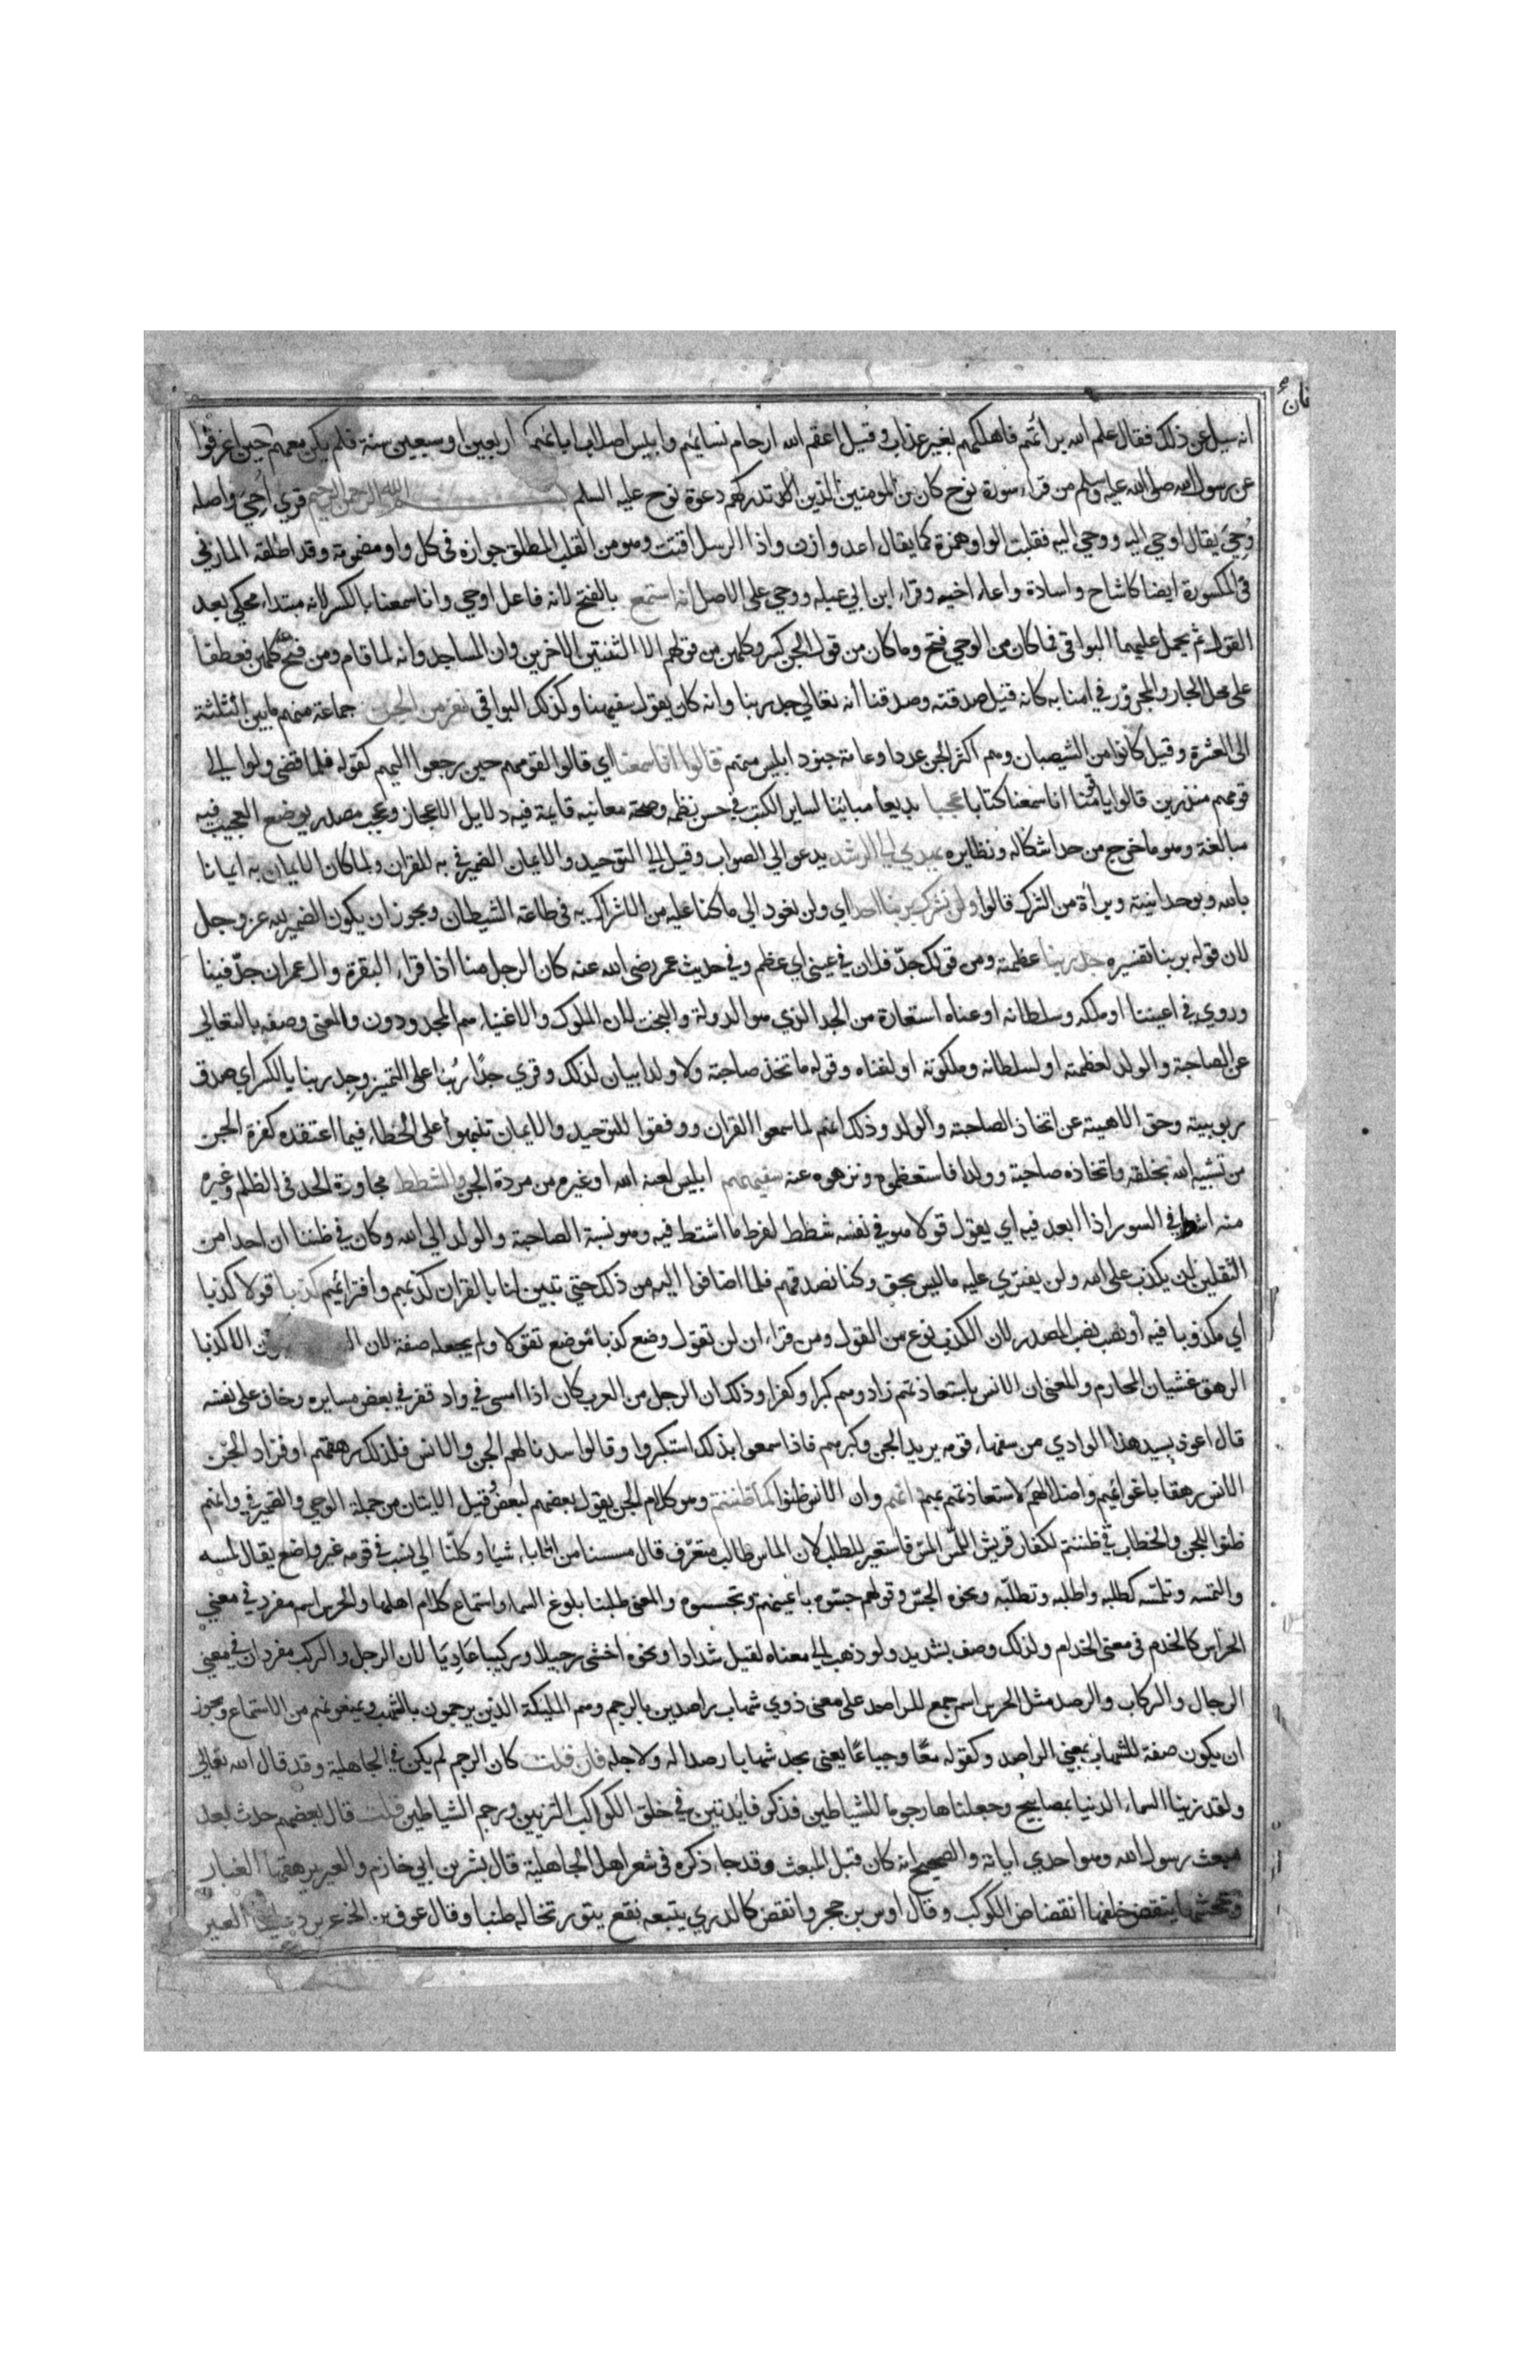 انه سيل عن ذلك فقال علم الله براتهم فاهلكهم بغير عذاب وقيل اعقم الله ارحام نسايهم وايبس اصلاب ابايهم اربعين او سبعين سنة فلم يكن معهم حين اغرقوا
عن رسول الله صلى الله عليه وسلم من قراء سورة نوح كان من المومنين الذين تدركهم دعوة نوح عليه السلم بسم الله الرحمن الرحيم قري أحي واصله
وحي يقال اوحي اليه ووحي اليه فقلبت الواو همزة كما يقال اعد وازن واذا الرسل اقتت وهو من القلب المطلق جوازه في كل واو مضمومة وقد اطلقه المازني
في المكسورة ايضا كاشاح واسادة واعاء اخيه وقراء ابن ابي عبلة ووحي على الاصل انه استمع بالفتح لانه فاعل اوحي وانا سمعنا بالكسر لانه مبتداء محكي بعد
القول ثم يحمل عليهما البواقي فما كان من الوحي فتح وما كان من قول الجن كسر وكلهن من قولهم الا الثنتين الاخرين وان المساجد وانه لما قام ومن فتح كلهن فعطفا
على محل الجار والمجرور في امنا به كانه قيل صدقته وصدقنا انه تعالي جد ربنا وانه كان يقول سفيهنا وكذلك البواقي نفر من الجن جماعة منهم ما بين الثلثة
الى العشرة وقيل كانوا من الشيصبان وهم اكثر الجن عددا وعامة جنود ابليس منهم فقالوا انا سمعنا اي قالوا لقومهم حين رجعوا اليهم كقوله فلما قضي ولوا الي
قومهم منذرين قالوا يا قومنا انا سمعنا كتابا عجبا بديعا مباينا لساير الكتب في حسن نظمه وصحة معانيه قايمة فيه دلايل الاعجاز وعجب مصدر يوضع العجيب فيه
مبالغة وهو ما خرج من حد اشكاله ونظايره يهدي الي الرشد يدعو الي الصواب وقيل الي التوحيد والايمان الضمير في به للقران ولما كان الايمان به ايمانا
بالله وبوحدانيته وبراة من الشرك قالوا ولن نشرك بربنا احدا اي ولن نعود الي ما كنا عليه من الاشراك به في طاعة الشيطان ويجوز ان يكون الضمير لله عز وجل
لان قوله بربنا تفسيره جد ربنا عظمته ومن قولك جدّ فلان في عيني اي عظم وفي حديث عمر رضي الله عنه كان الرجل منا اذا قراء البقرة وال عمران جدّ فينا
وروي في اعيننا او ملكه وسلطانه او غناه استعارة من الجد الذي هو الدولة والبخت لان الملوك والاغنياء هم المجدودون والمعنى وصفه بالتعالي
عن الصاحبة والولد لعظمته او لسلطانه وملكوته او لغناه وقوله ما تخذ صاحبة ولا ولدا بيان لذلك وقري جدًا ربُنا على التميز وجِد ربنا بالكسر اي صدق
ربوبيته وحق الاهيته عن اتخاذ الصاحبة والولد وذلك انهم لما سمعوا القران ووفقوا للتوحيد والايمان تنبهوا على الخطاء فيما اعتقده كفرة الجن
من تشبيه الله بخلقه واتخاذه صاحبة وولدا فاستعظموه ونزهوه عنه سفيههم ابليس لعنه الله او غيره من مردة الجن والشطط مجاورة الحد في الظلم وغيره
منه اشط في السوم اذا ابعد فيه اي يقول قولا هو في نفسه شطط لفرط ما اشتط فيه وهو نسبة الصاحبة والولد الي الله وكان في ظننا ان احدا من
الثقلين لن يكذب على الله ولن يفتري عليه ما ليس بحق وكنا نصدقهم فلما اضافوا اليه من ذلك حتي تبين لنا بالقران كذبهم وافترايهم كذبا قولا كذبا
اي مكذوبا فيه أو نصب نصب المصدر لان الكذب نوع من القول ومن قراء ان لن تقول وضع كذبا موضع تقولا ولم يجعله صفة لان الا كذبا
الرهق غشيان المحارم والمعنى ان الانس باستعاذتهم زادوهم كبرا وكفرا وذلك ان الرجل من العرب كان اذا امسى في واد قفر في بعض مسايره وخاف على نفسه
قال اعوذ بسيد هذا الوادي من سفهاء قومه يريد الجن وكبيرهم فاذا سمعوا بذلك استكبروا وقالوا سدنا الجن والانس فذلك رهقهم او فزاد الجن
الانس رهقا باغوايهم واضلالهم لاستعاذتهم بهم وانهم وان الانس ظنوا كما ظننتم وهو كلام الجن يقول بعضهم لبعض وقيل الايتان من جملة الوحي والضمير في وانهم
ظنوا للجن والخطاب في ظننتم لكفار قريش اللمس المس فاستعير للطلب لان الماس طالب متعرّف قال مسسنا من الاباء شيا وكلّنا الي نسب في قومه غير واضع يقال لمسه
والتمسه وتلمسه كطلبه واطلبه وتطلّبه ونحوه الجسّ وقولهم جسّوه باعينهم وتجسسوه والمعنى طلبنا بلوغ السماء واستماع كلام اهلها والحرس اسم مفرد في معني
الحراس كالخدم في معنى الخدام ولذلك وصف بشديد ولو ذهب الي معناه لقيل شدادا ونحوه اخشى رجيلا وركيبا عَادِيَا لان الرجل والركب مفردان في معني
الرجال والركاب والرصد مثل الحرس اسم جمع للراصد على معنى ذوي شهاب راصدين بالرجم وهم المليكة الذين يرجمون بالشهب ويمنعونهم من الاستماع ويجوز
ان يكون صفة للشهاب بمعني الراصد وكقوله معًا وجياعًا يعني يجد شهابا رصدا له ولاجله فان قلت كان الرجم لم يكن في الجاهلية وقد قال الله تعالي
ولقد زينا السماء الدنيا بمصابيح وجعلناها رجوما للشياطين فذكر فايدتين في خلق الكواكب التزيين ورجم الشياطين قلت قال بعضهم حدث بعد
مبعث رسول الله وهو احدي اياته والصحيح انه كان قبل المبعث وقد جاء ذكره في شعر اهل الجاهلية قال بشر بن ابي خازم والعير يرهقها الغبار
وجحشها ينقض خلفها انقضاض الكوكب وقال اوس بن حجر وانقض كالدري يتبعه نقع يثور تخاله طنبا وقال عوف بن الخرع يرد علينا العير